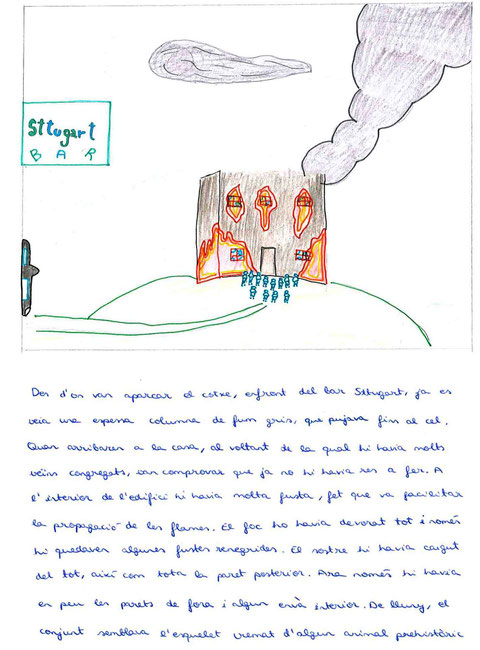 Sttugart
BAR
Des d'on van aparcar el cotxe, enfront del bar Sttugart, ja es
veia una espessa columna de fum gris, que pujava fins al cel.
Quan arribaren a la casa, al voltant de la qual hi havia molts
veïns congregats, van comprovar que ja no hi havia res a fer. A
l'interior de l'edifici hi havia molta fusta, fet que va facilitar
la propagació de les flames. El foc ho havia devorat tot i només
hi quedaven algunes fustes renegrides. El sostre hi havia caigut
del tot, així com tota la paret posterior. Ara només hi havia
en peu les parets de fora i algun envà interior. De lluny, el
conjunt semblava l'esquelet cremat d'algun animal prehistòric